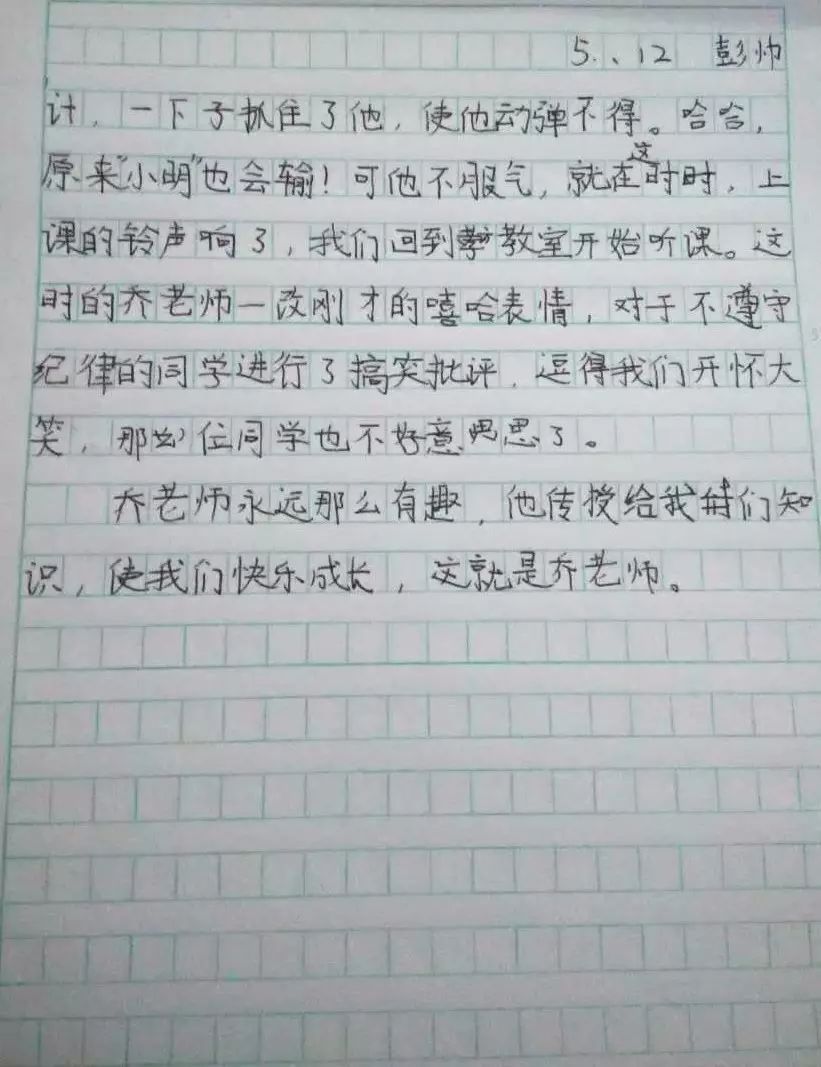 5.、12 彭帅
计，一下子抓住了他，使他动弹不得。哈哈，
原来“小明”也会输！可他不服气，就在这时时，上
课的铃声响了，我们回到教室开始听课。这
时的乔老师一改刚才的嘻哈表情，对于不遵守
纪律的同学进行了搞笑批评，逗得我们开怀大
笑，那位同学也不好意思了。
乔老师永远那么有趣，他传授给我们知
识，使我们快乐成长，这就是乔老师。